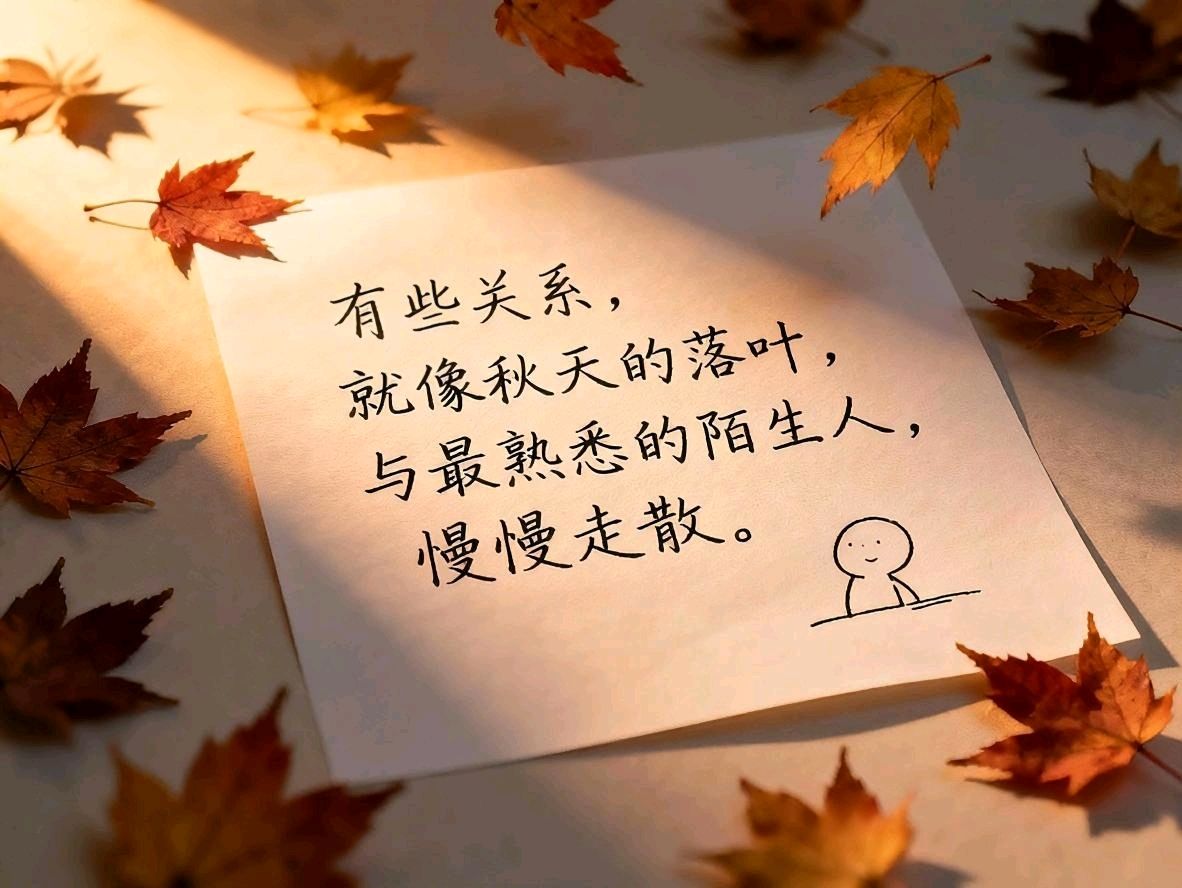 有些关系，
就像秋天的落叶，
与最熟悉的陌生人，
慢慢走散。